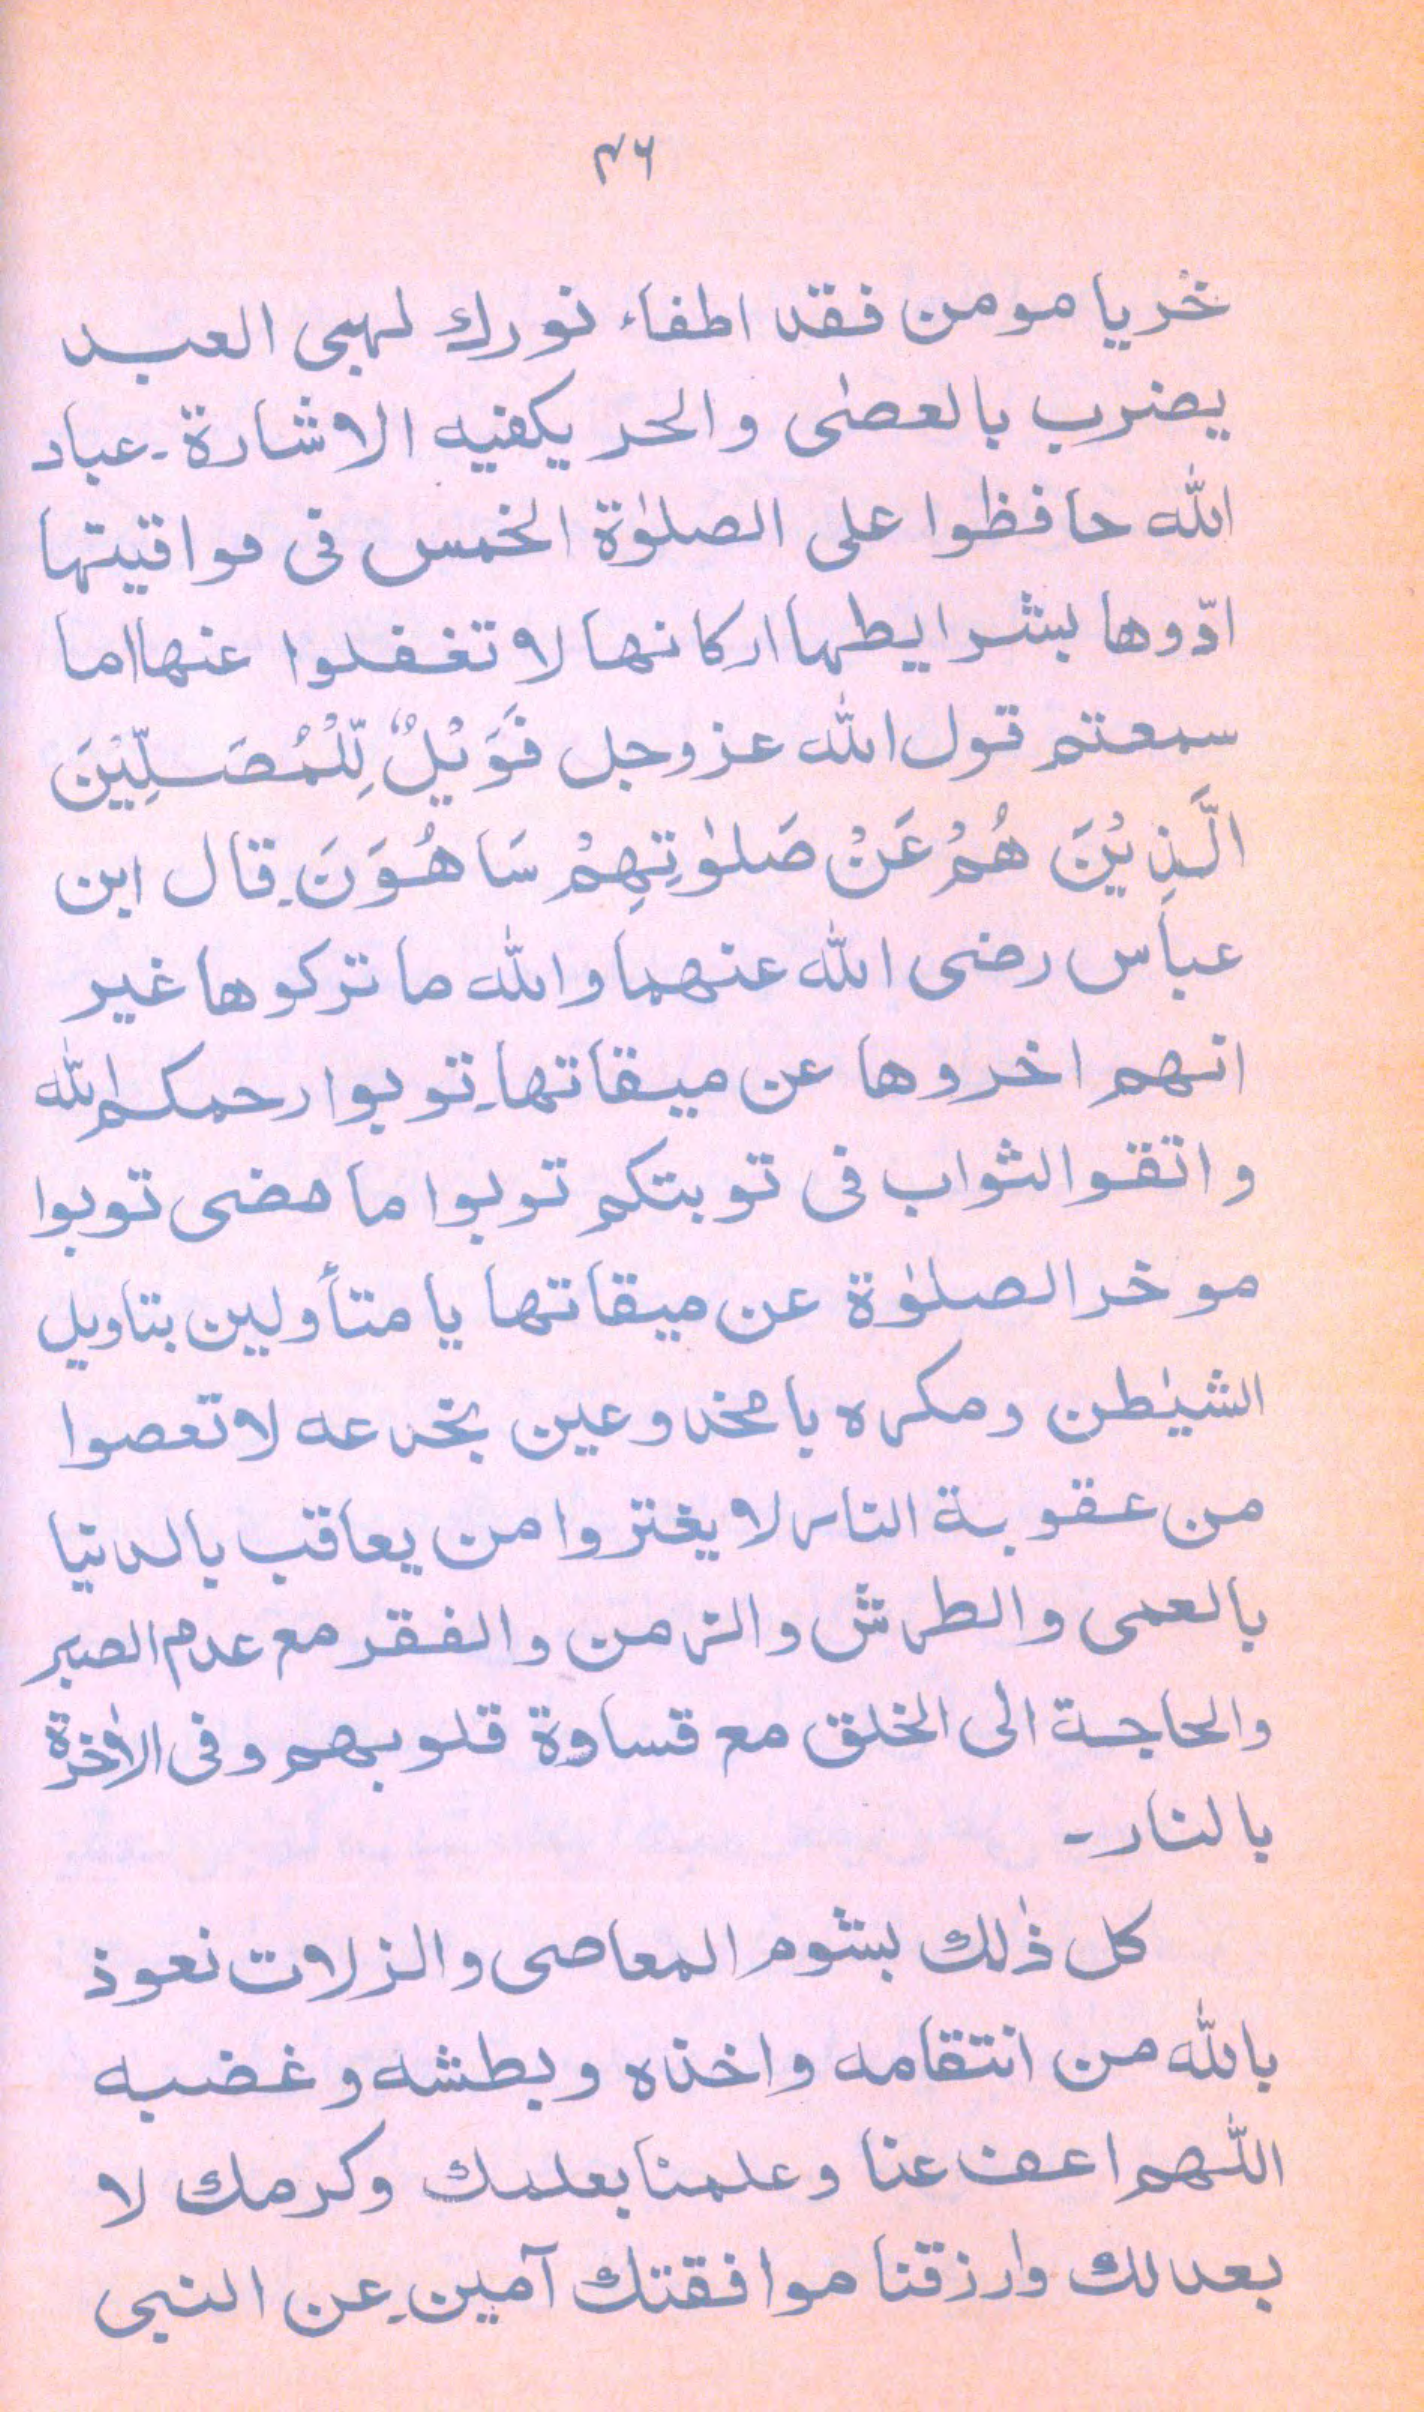 ۴۶
خر يا مومن فقد اطفاء نورك لهبی العبد
يضرب بالعصٰی والحر يكفيه الاشارة۔ عباد
الله حافظوا علی الصلوٰة الخمس فی مواقيتها
ادّوها بشرايطها اركانها لا تغفلوا عنها اما
سمعتم قول الله عزوجل فَوَيْلٌ لِّلْمُصَلِّيْنَ
الَّذِيْنَ هُمْ عَنْ صَلوٰتِهِمْ سَاهُوَنَ۔ قال ابن
عباس رضی الله عنهما والله ما تركوها غير
انهم اخروها عن ميقاتها۔ توبوا رحمكم الله
و اتقوا الثواب فی توبتكم توبوا ما مضی توبوا
موخر الصلوٰة عن ميقاتها يا متأولين بتاويل
الشيٰطن ومكره با مخدوعين بخدعه لا تعصوا
من عقوبة النار لا يغتروا من يعاقب بالدنيا
بالعمی والطرش والزمن والفقر مع عدم الصبر
والحاجة الی الخلق مع قساوة قلوبهم وفی الاٰخرة
بالنار۔
كل ذٰلك بشوم المعاصی والزلات نعوذ
بالله من انتقامه واخذه وبطشه وغضبه
اللٰهم اعف عنا وعلمنا بعلمك وكرمك لا
بعدالك وارزقنا موافقتك آمين۔ عن النبی